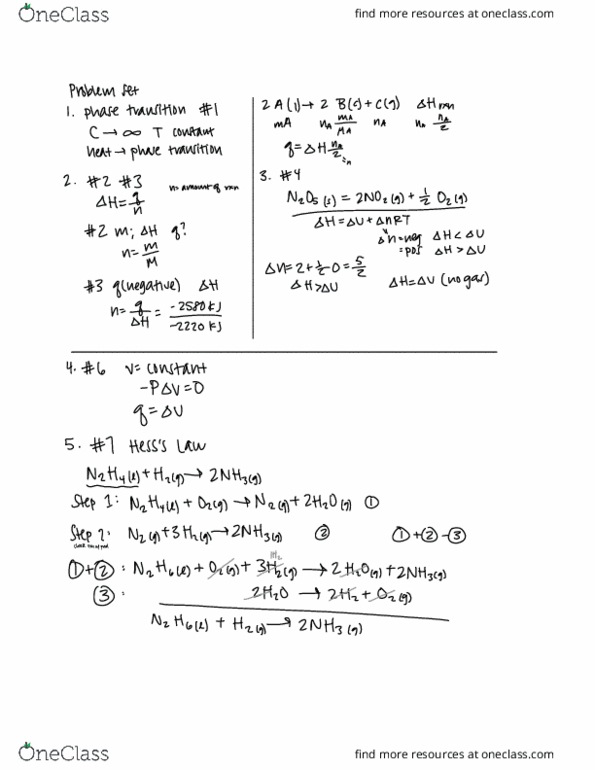 OneClass
find more resources at oneclass.com
Problem set
1. phase transition #1
C → ∞ T constant
heat → phase transition
2. #2 #3 n= amount of rxn
ΔH = q/n
#2 m; ΔH q?
n = m/M
#3 q(negative) ΔH
n = q/ΔH = -2580 kJ / -2220 kJ
2 A(l) → 2 B(s) + C(g) ΔHrxn
mA nA mA/MA nA nA nA/2
q = ΔH nA/2 =n
3. #4
N2O5(s) = 2NO2(g) + 1/2 O2(g)
ΔH = ΔU + ΔnRT
Δn = neg ΔH < ΔU
= pos ΔH > ΔU
Δn = 2 + 1/2 - 0 = 5/2
ΔH > ΔU ΔH = ΔU (no gas)
4. #6 V = constant
-PΔV = 0
q = ΔU
5. #7 Hess's Law
N2H4(l) + H2(g) → 2NH3(g)
Step 1: N2H4(l) + O2(g) → N2(g) + 2H2O(g) ①
Step 2: N2(g) + 3H2(g) → 2NH3(g) ② ① + ② - ③
1H2
① + ② : N2H6(l) + O2(g) + 3H2(g) → 2H2O(g) + 2NH3(g)
③ : 2H2O → 2H2 + O2(g)
N2H6(l) + H2(g) → 2NH3(g)
OneClass
find more resources at oneclass.com